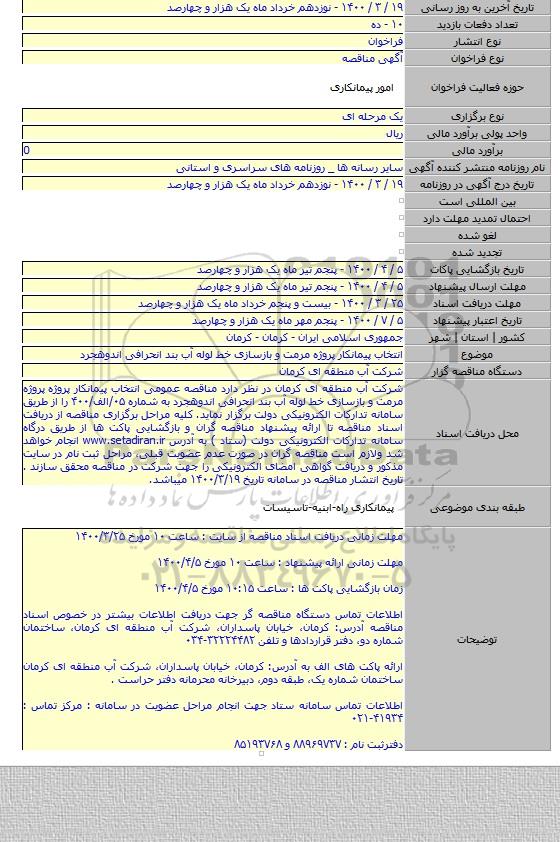 تاریخ آخرین به روز رسانی ۱۹ / ۳ / ۱۴۰۰ - نوزدهم خرداد ماه یک هزار و چهارصد
تعداد دفعات بازدید ۱۰ - ده
نوع انتشار فراخوان
نوع فراخوان آگهی مناقصه
حوزه فعالیت فراخوان امور پیمانکاری
نوع برگزاری یک مرحله ای
واحد پولی برآورد مالی ریال
برآورد مالی 0
نام روزنامه منتشر کننده آگهی سایر رسانه ها _ روزنامه های سراسری و استانی
تاریخ درج آگهی در روزنامه ۱۹ / ۳ / ۱۴۰۰ - نوزدهم خرداد ماه یک هزار و چهارصد
بین المللی است
احتمال تمدید مهلت دارد
لغو شده
تجدید شده
تاریخ بازگشایی پاکات ۵ / ۴ / ۱۴۰۰ - پنجم تیر ماه یک هزار و چهارصد
مهلت ارسال پیشنهاد ۵ / ۴ / ۱۴۰۰ - پنجم تیر ماه یک هزار و چهارصد
مهلت دریافت اسناد ۲۵ / ۳ / ۱۴۰۰ - بیست و پنجم خرداد ماه یک هزار و چهارصد
تاریخ اعتبار پیشنهاد ۵ / ۷ / ۱۴۰۰ - پنجم مهر ماه یک هزار و چهارصد
کشور | استان | شهر جمهوری اسلامی ایران - کرمان - کرمان
موضوع انتخاب پیمانکار پروژه مرمت و بازسازی خط لوله آب بند انحرافی اندوهجرد
دستگاه مناقصه گزار شرکت آب منطقه ای کرمان
محل دریافت اسناد
شرکت آب منطقه ای کرمان در نظر دارد مناقصه عمومی انتخاب پیمانکار پروژه پروژه
مرمت و بازسازی خط لوله آب بند انحرافی اندوهجرد به شماره ۰۵/الف/۴۰۰ را از طریق
سامانه تدارکات الکترونیکی دولت برگزار نماید. کلیه مراحل برگزاری مناقصه از دریافت
اسناد مناقصه تا ارائه پیشنهاد مناقصه گران و بازگشایی پاکت ها از طریق درگاه
سامانه تدارکات الکترونیکی دولت (ستاد ) به آدرس www.setadiran.ir انجام خواهد
شد ولازم است مناقصه گران در صورت عدم عضویت قبلی، مراحل ثبت نام در سایت
مذکور و دریافت گواهی امضای الکترونیکی را جهت شرکت در مناقصه محقق سازند .
تاریخ انتشار مناقصه در سامانه تاریخ ۱۴۰۰/۳/۱۹ میباشد.
طبقه بندی موضوعی پیمانکاری راه-ابنیه-تاسیسات
توضیحات
مهلت زمانی دریافت اسناد مناقصه از سایت : ساعت ۱۰ مورخ ۱۴۰۰/۳/۲۵
مهلت زمانی ارائه پیشنهاد : ساعت ۱۰ مورخ ۱۴۰۰/۴/۵
زمان بازگشایی پاکت ها : ساعت ۱۰:۱۵ مورخ ۱۴۰۰/۴/۵
اطلاعات تماس دستگاه مناقصه گر جهت دریافت اطلاعات بیشتر در خصوص اسناد
مناقصه آدرس: کرمان، خیابان پاسداران، شرکت آب منطقه ای کرمان، ساختمان
شماره دو، دفتر قراردادها و تلفن ۳۲۲۲۴۴۸۲-۰۳۴
ارائه پاکت های الف به آدرس: کرمان، خیابان پاسداران، شرکت آب منطقه ای کرمان
ساختمان شماره یک، طبقه دوم، دبیرخانه محرمانه دفتر حراست .
اطلاعات تماس سامانه ستاد جهت انجام مراحل عضویت در سامانه : مرکز تماس :
۰۲۱-۴۱۹۳۴
دفترثبت نام : ۸۸۹۶۹۷۳۷ و ۸۵۱۹۳۷۶۸